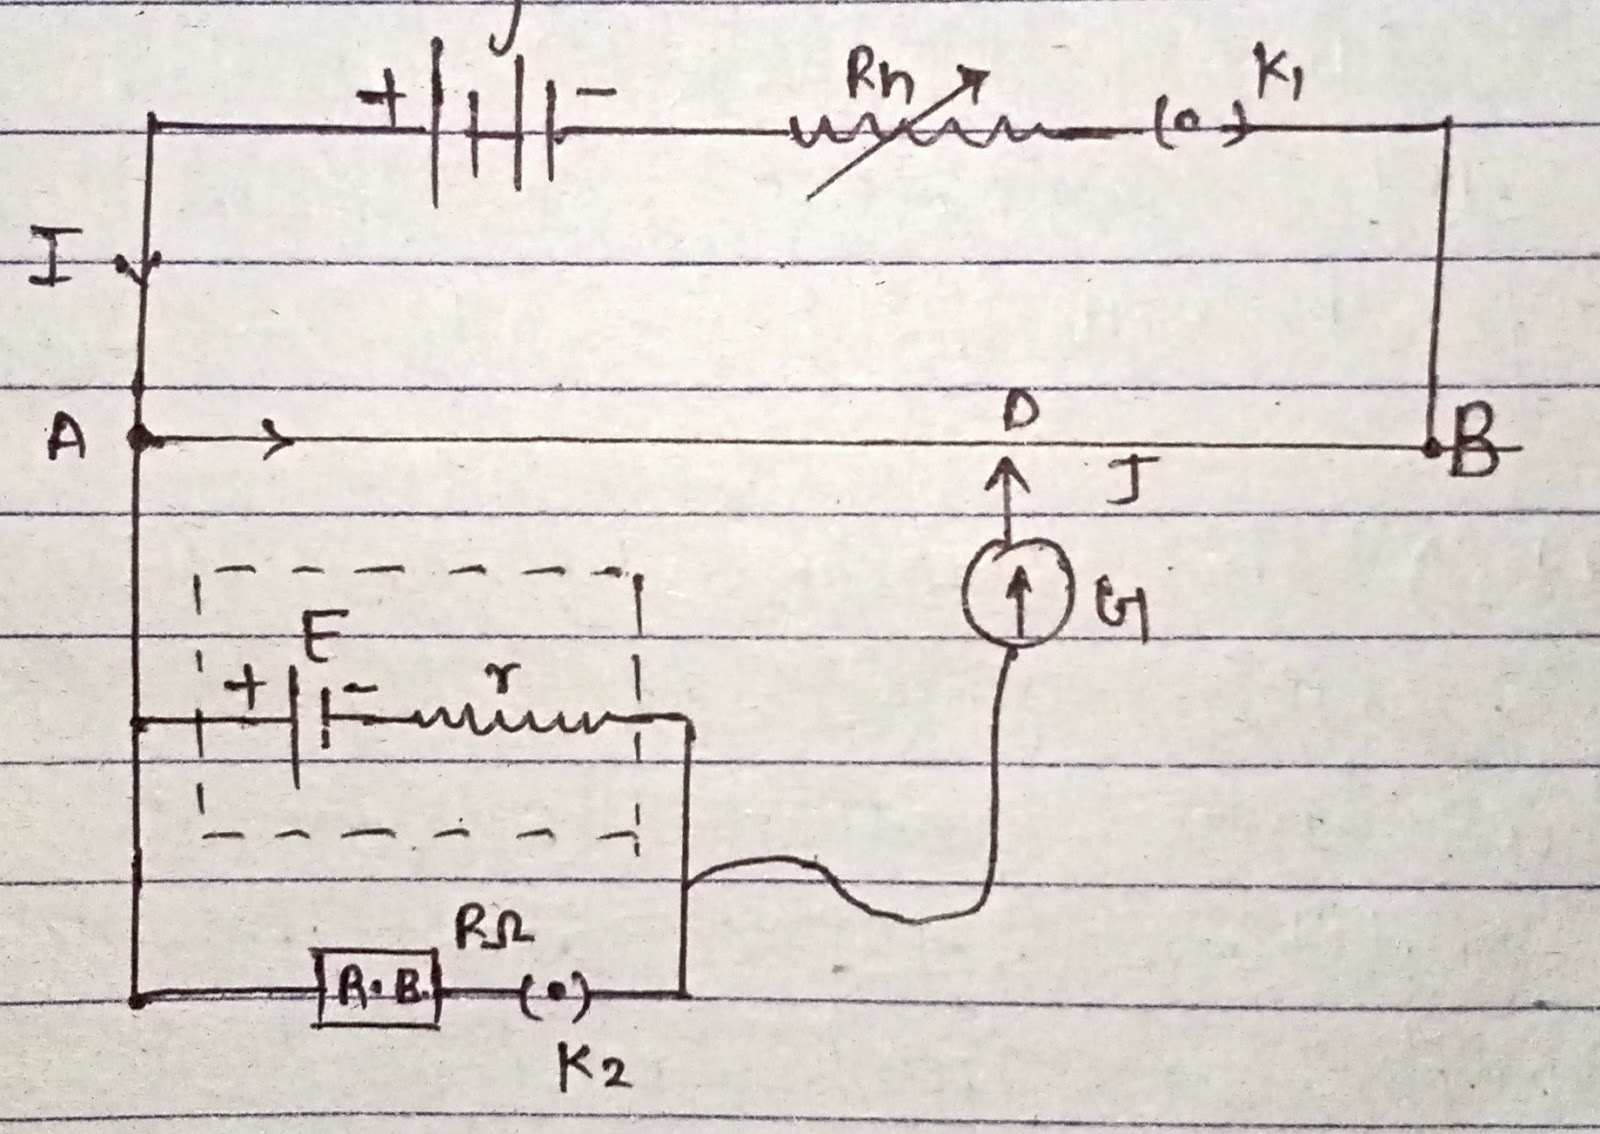 + -
Rh
K1
I
A
D
B
J
G
E
+ -
r
RΩ
R.B.
K2